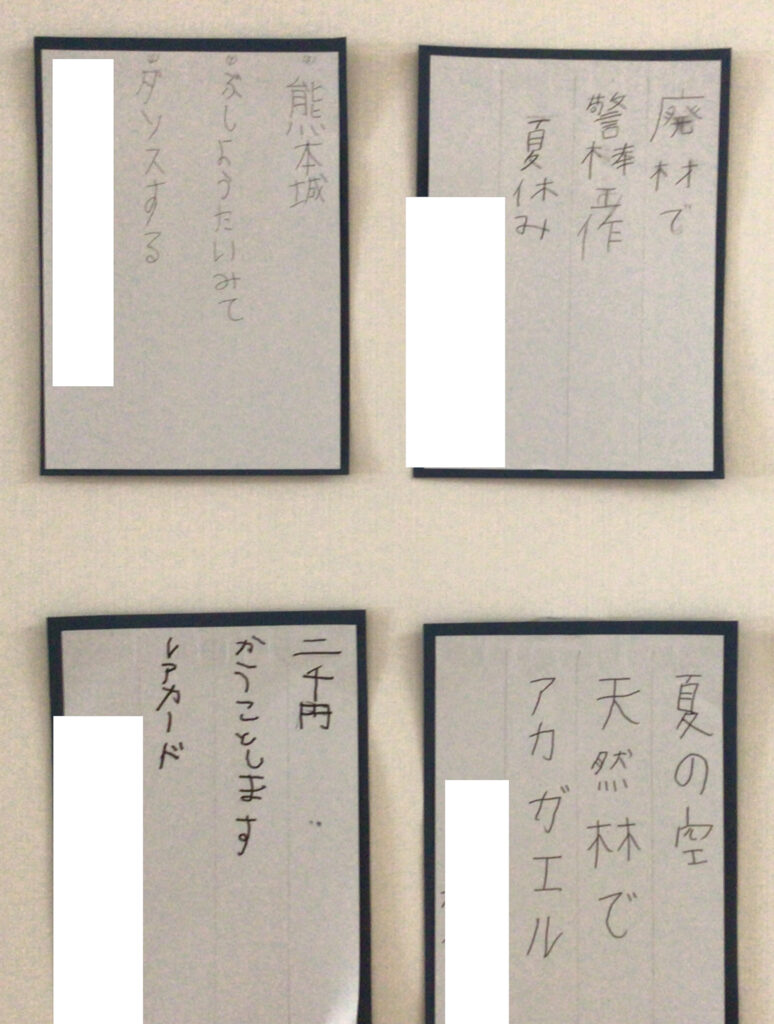 熊本城
ぶしようたいみて
ダンスする
廃材で
警棒工作
夏休み
二千円
かうことします
レアカード
夏の空
天然林で
アカガエル